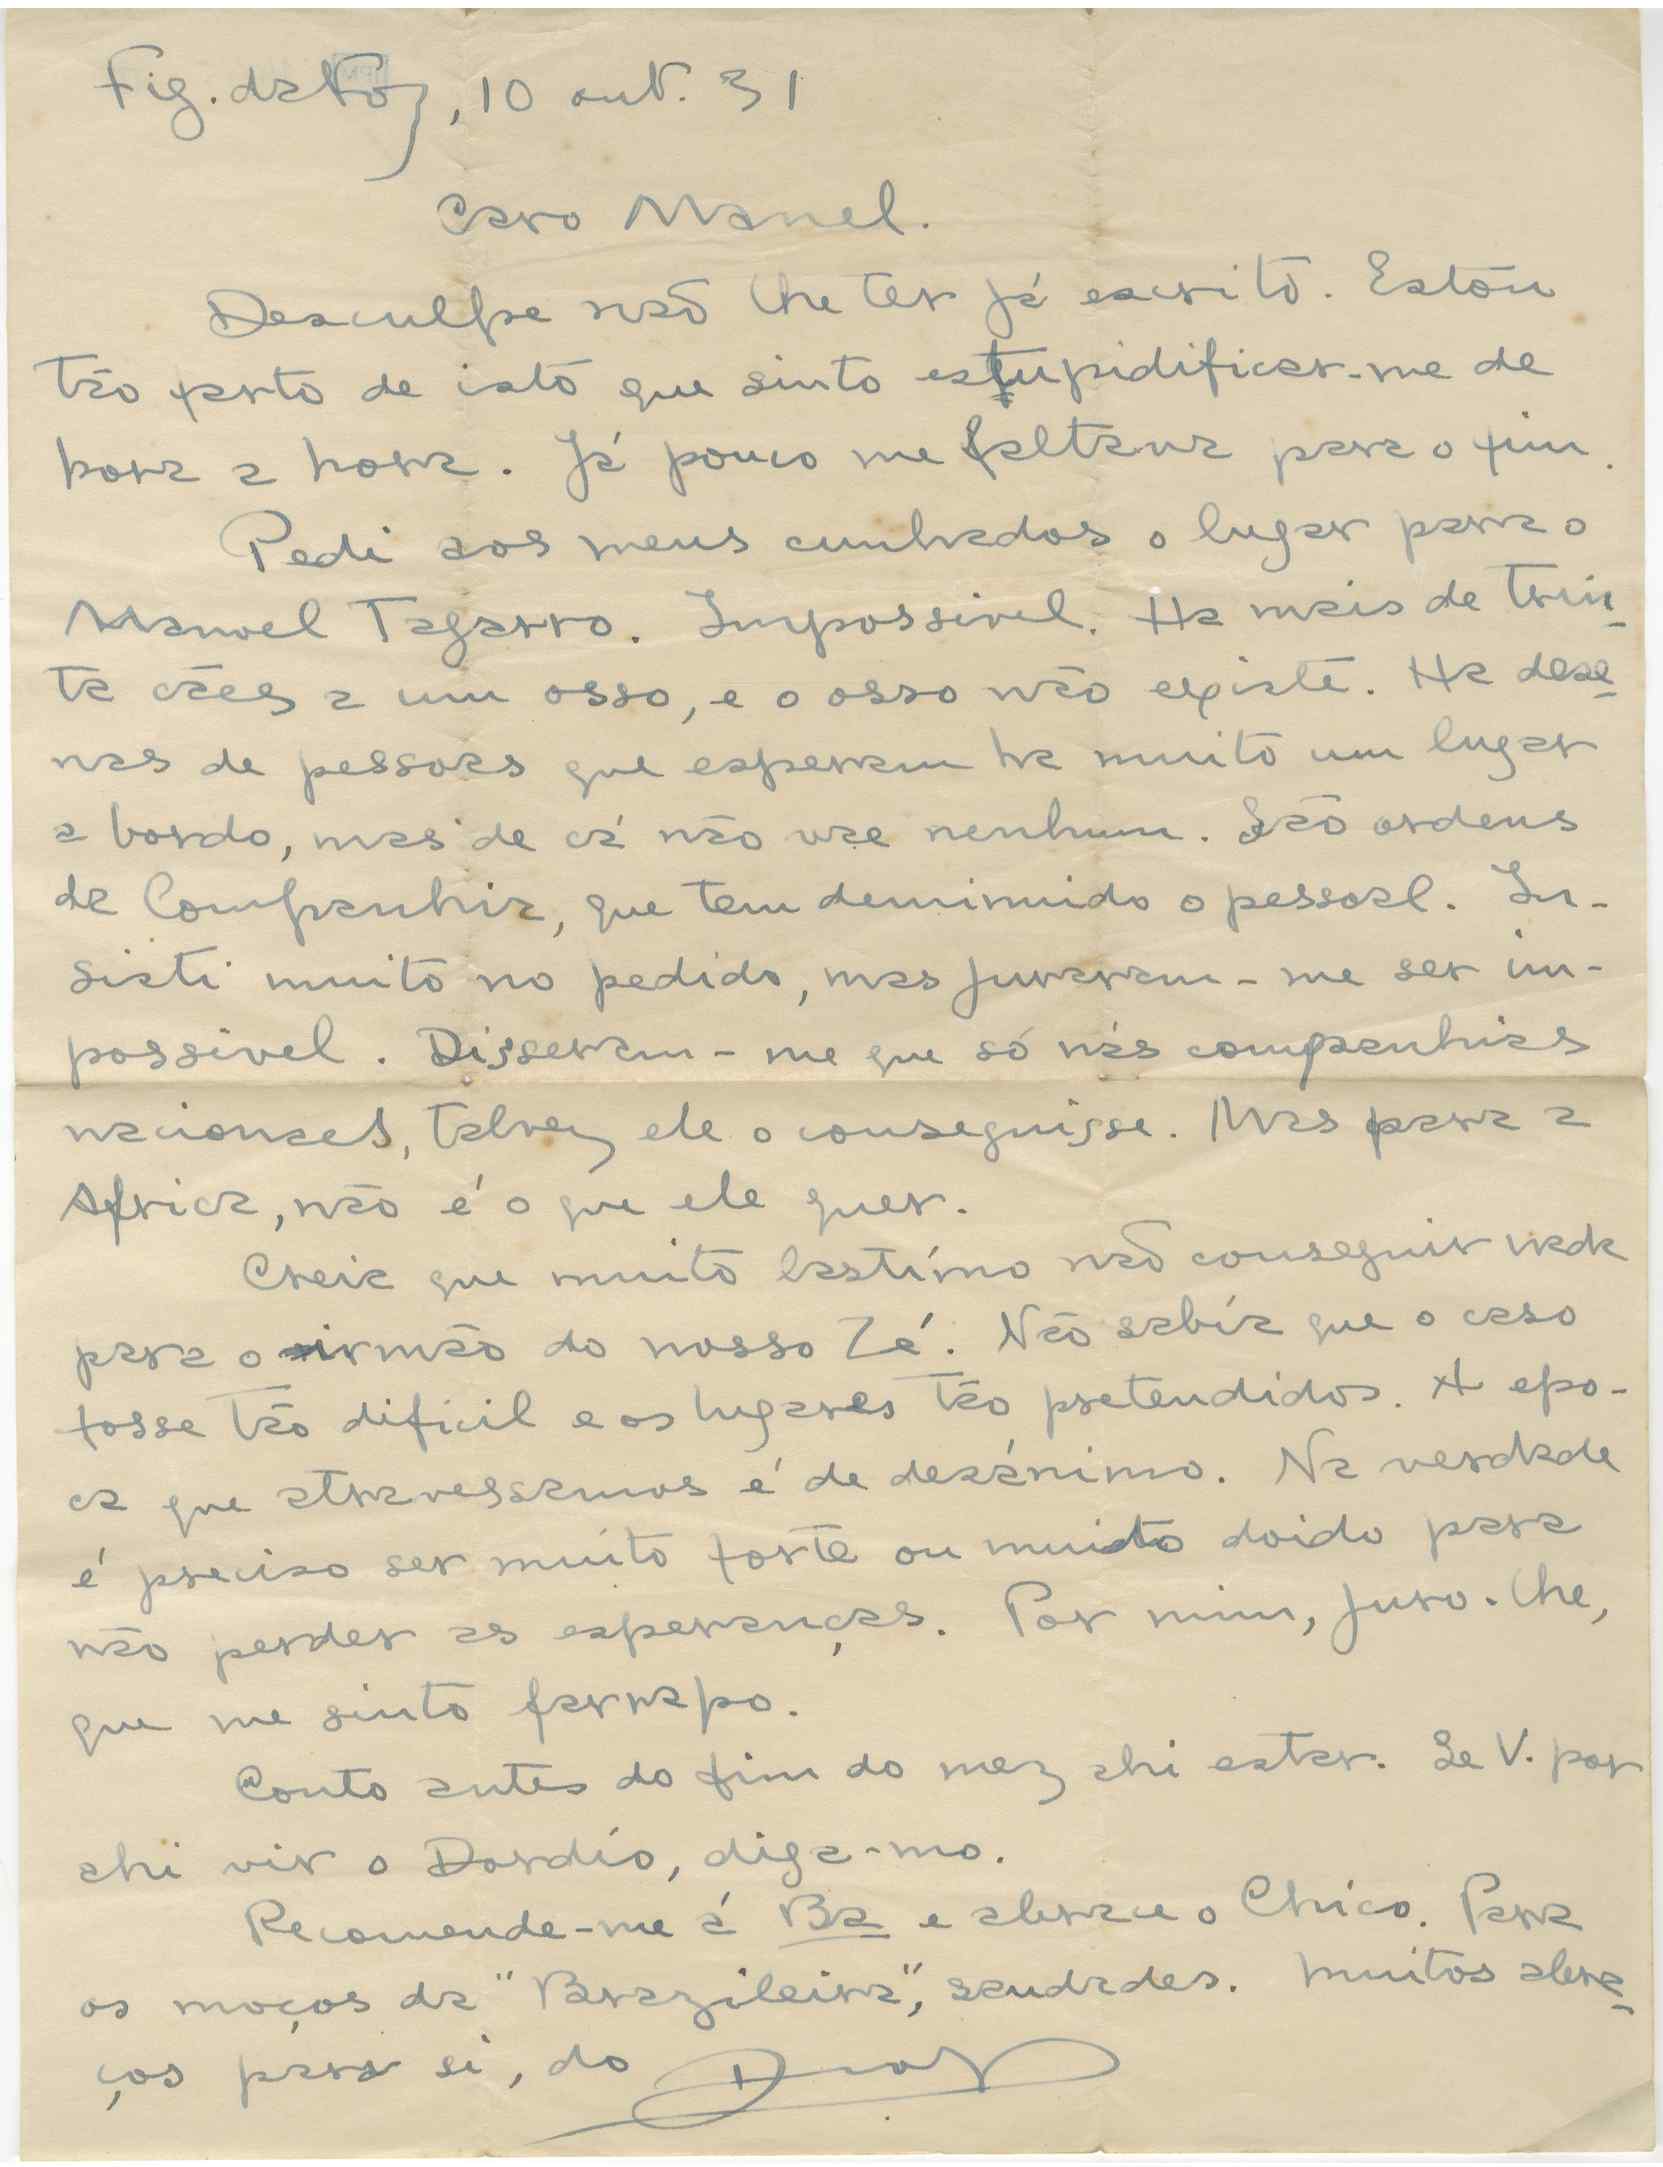 Fig. da Foz, 10 out. 31
Caro Manel.
Desculpe não lhe ter já escrito. Estou
tão farto de isto que sinto estupidificar-me de
hora a hora. Já pouco me faltava para o fim.
Pedi aos meus cunhados o lugar para o
Manoel Tagarro. Impossivel. Ha mais de trin-
ta cães a um osso, e o osso não existe. Ha deze-
nas de pessoas que esperam ha muito um lugar
a bordo, mas de cá não vae nenhum. São ordens
da Companhia, que tem deminuido o pessoal. In-
sisti muito no pedido, mas juraram-me ser im-
possivel. Disseram-me que só nas companhias
nacionaes, talvez ele o conseguisse. Mas para a
Africa, não é o que ele quer.
Creia que muito lastímo não conseguir nada
para o irmão do nosso Zé. Não sabía que o caso
fosse tão dificil e os lugares tão pretendidos. A epo-
ca que atravessamos é de dezánimo. Na verdade
é preciso ser muito forte ou muito doido para
não perder as esperanças. Por mim, juro-lhe,
que me sinto farrapo.
Conto antes do fim do mez ahi estar. Se V. por
ahi vir o Dordío, diga-mo.
Recomende-me á Ba e abrace o Chico. Para
os moços da "Brazileira", saudades. Muitos abra-
ços para si, do